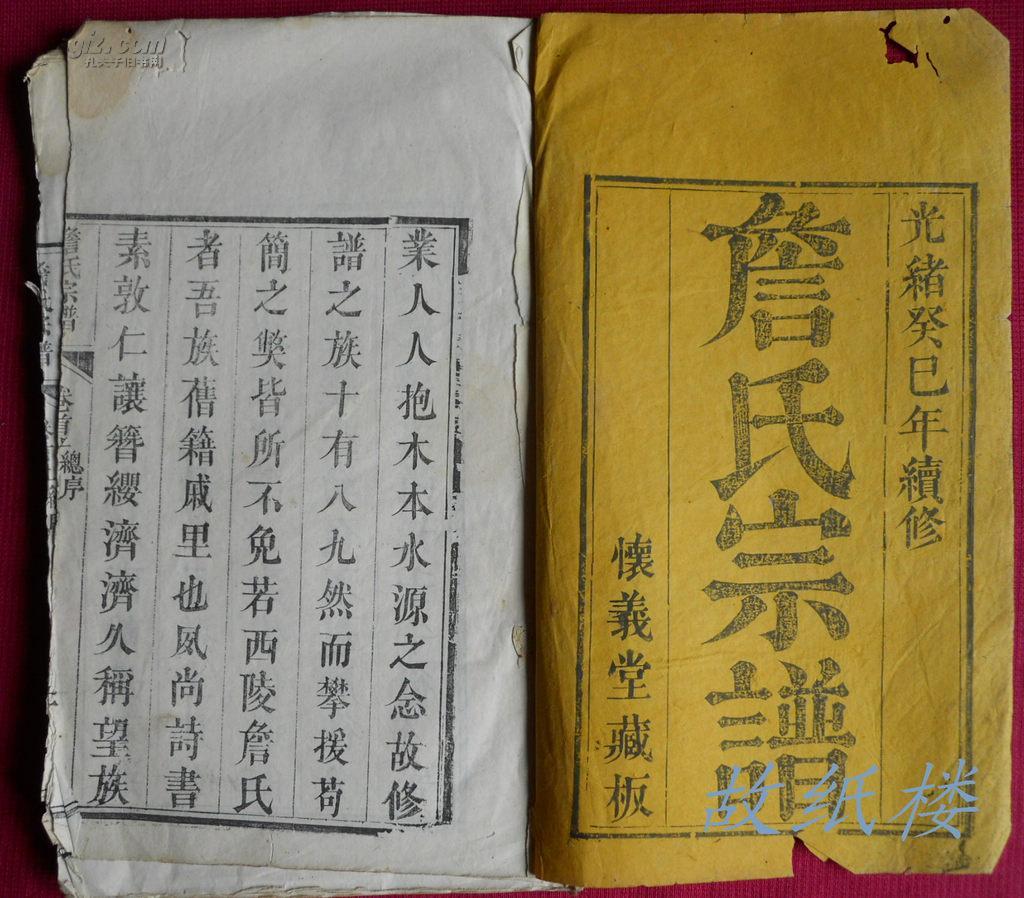 光緒癸巳年續修
詹氏宗譜
懷義堂藏板
業人人抱木本水源之念故修
譜之族十有八九然而攀援苟
簡之獘皆所不免若西陵詹氏
者吾族舊籍戚里也夙尚詩書
素敦仁讓簪纓濟濟久稱望族
詹氏宗譜
卷首
總序
故纸楼
孔夫子旧书网